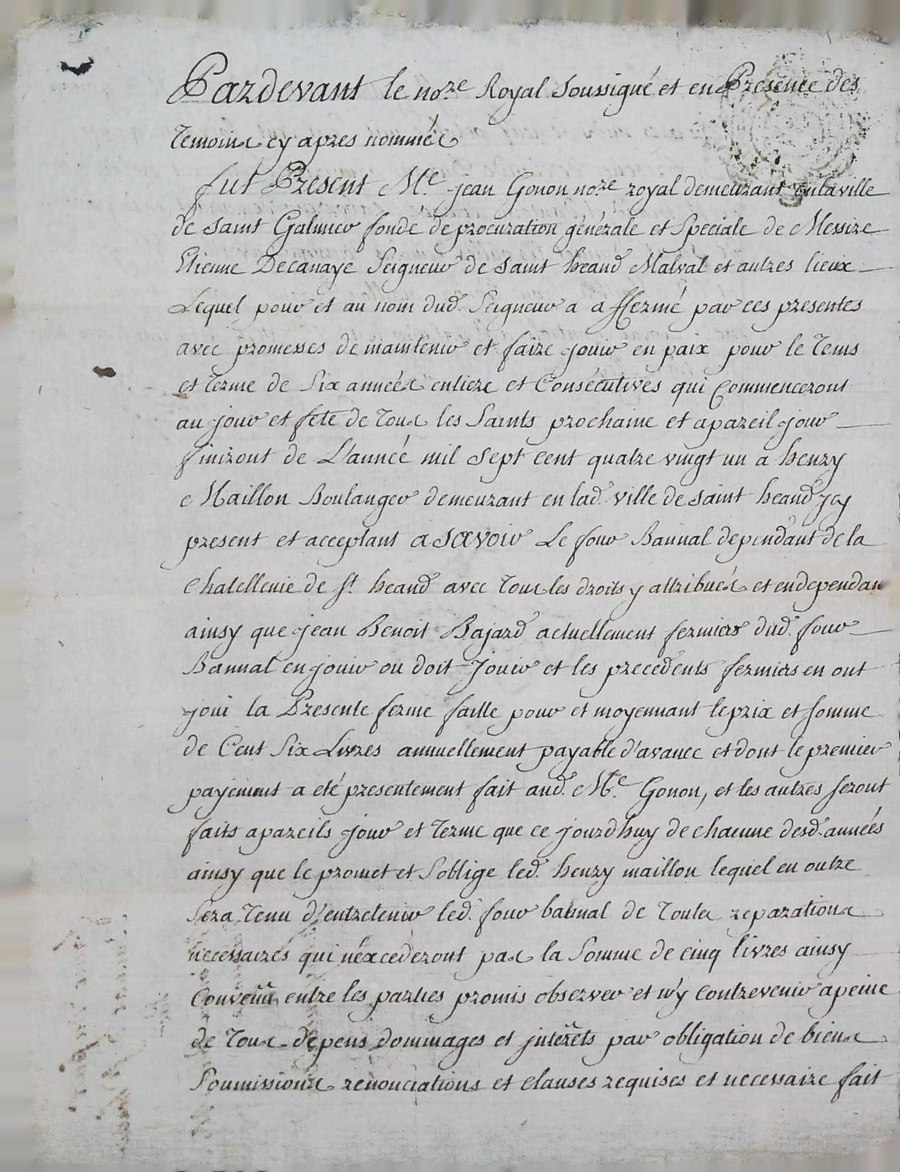 Pardevant le no.re Royal Soussigné et en Presence des
temoins cy apres nommés
fut Present M.e jean Gonon no.re royal demeurant en la ville
de saint Galmier fondé de procuration générale et Speciale de Messire
Etienne Decanaye Seigneur de saint heand Malval et autres lieux
Lequel pour et au nom dud. Seigneur a affermé par ces presentes
avec promesses de maintenir et faire jouir en paix pour le tems
et terme de Six années entiere et Consécutives qui Commenceront
au jour et fete de Tous les Saints prochaine et a pareil jour
finiront de L'année mil sept cent quatre vingt un a henry
Maillon Boulanger demeurant en lad. ville de saint heand jcy
present et acceptant a savoir Le four Bannal dependant de la
Chatellenie de S.t heand avec tous les droits y attribués et en dependan
ainsy que jean Benoit Bajard actuellement fermiers dud. four
Bannal en jouir ou doit jouir et les precedents fermiers en ont
joui la Presente ferme faitte pour et moyennant le prix et somme
de Cent Six Livres annuellement payable d'avance et dont le premier
payement a eté presentement fait aud. M.e Gonon, et les autres seront
faits a pareils jour et terme que ce jourdhuy de chacune desd. années
ainsy que le promet et S'oblige led. henry maillon lequel en outre
Sera tenu d'entretenir led. four bannal de toutes reparations
necessaires qui n'éxcederont pas la Somme de cinq livres ainsy
Convenu entre les parties promis observer et n'y contrevenir a peine
de tous depens dommages et interets par obligation de biens
Soumissions renonciations et clauses requises et necessaire fait